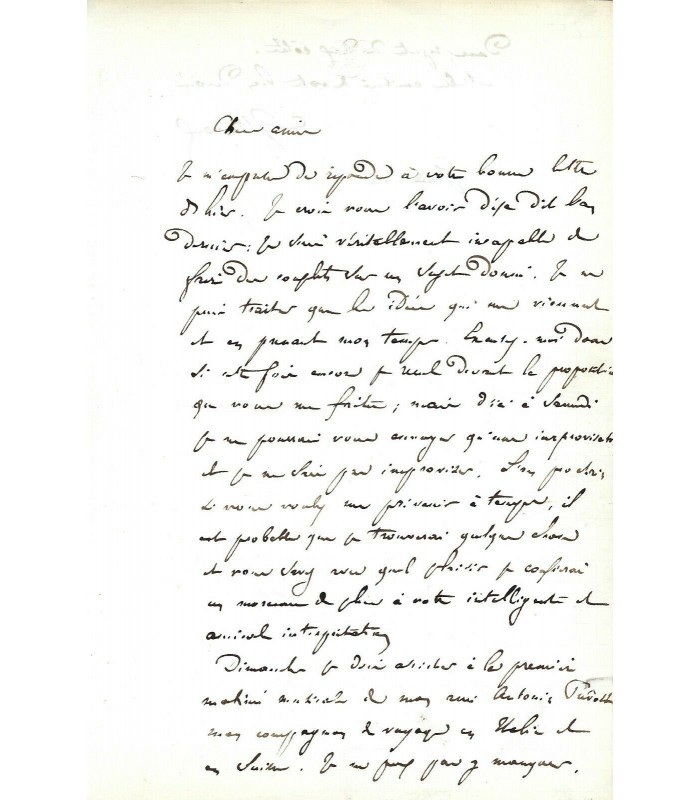 Cher ami
Je m'empresse de répondre à votre bonne lettre
d'hier. Je crois vous l'avoir déjà dit l'an
dernier : je suis véritablement incapable de
faire des couplets sur un sujet donné. Je ne
puis traiter que les idées qui me viennent
et en prenant mon temps. Excusez-moi donc
si cette fois encore je recule devant la proposition
que vous me faites ; mais d'ici à Samedi
je ne pourrais vous envoyer qu'une improvisation
et je ne sais pas improviser. L'an prochain
si vous voulez me prévenir à temps, il
est probable que je trouverai quelque chose
et vous savez avec quel plaisir je confierai
un morceau de plus à votre intelligente et
amicale interprétation
Dimanche je dois assister à la première
matinée musicale de mon ami Antonin
mon compagnon de voyage en Italie et
en Suisse. Je ne puis pas y manquer.